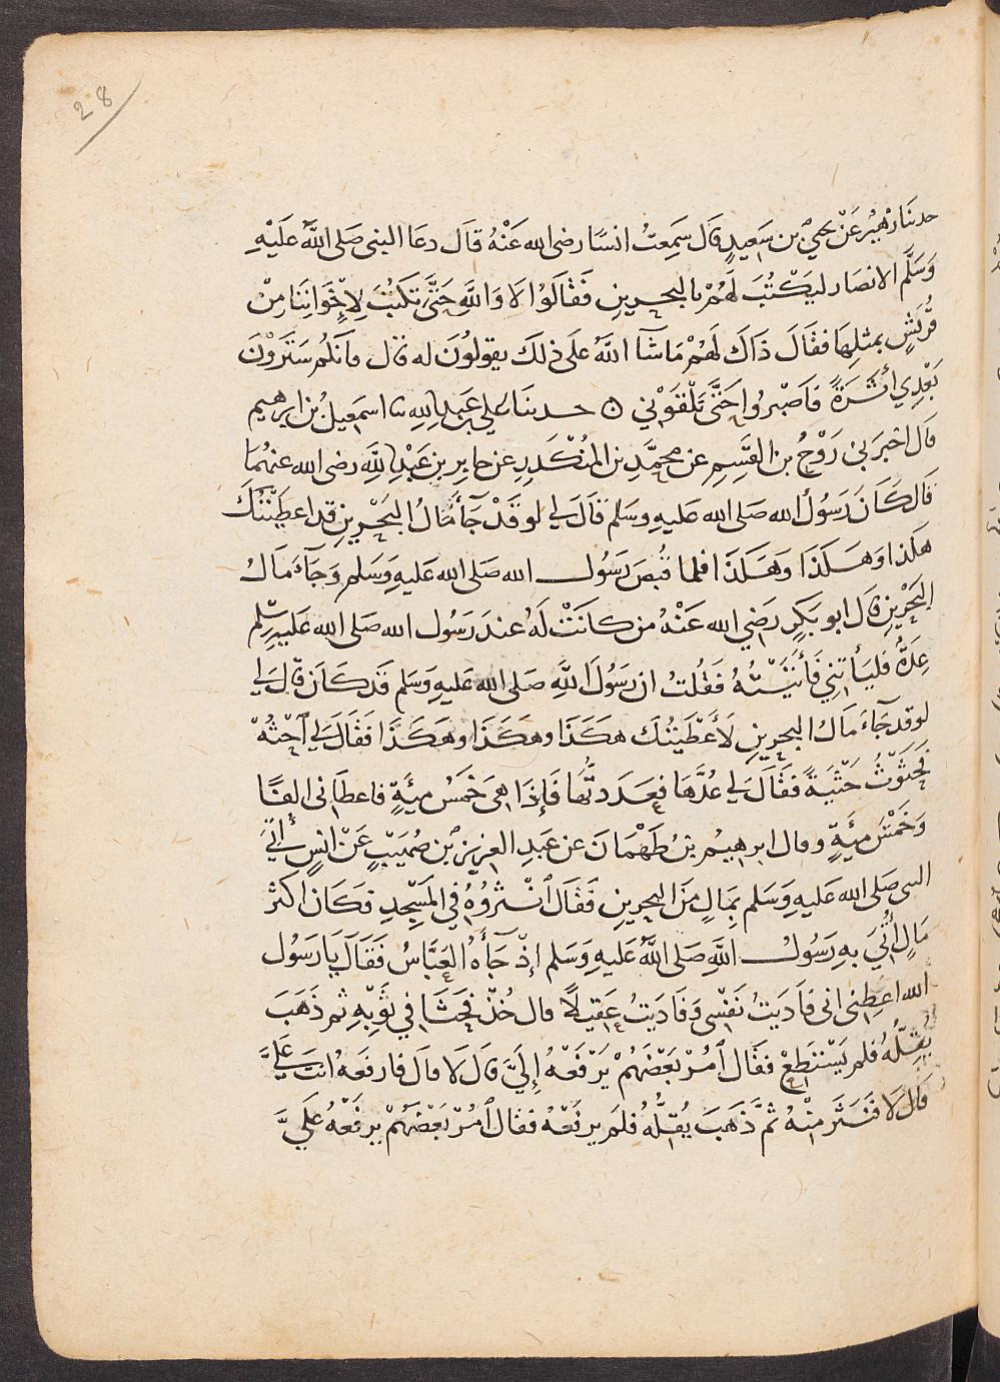 28
حدثنا زهير عَنْ يحيى بن سَعِيدٍ قال سَمِعتُ انسًا رضى الله عَنْهُ قال دعَا النبى صَلى اللهُ عَلَيْهِ
وَسَلَّم الانصَار ليَكْتُبَ لَهُمْ بالبحرينِ فَقَالُوا لا وَاللهِ حَتَّى تكتُبَ لِإخْوَانِنَا مِنْ
قُرَيشٍ بمثلِهَا فقَالَ ذَاكَ لَهُمْ مَا شآ اللهُ عَلَى ذلكَ يقولوُنَ له قال فانكُم سَتَرَوْنَ
بَعْدِي أُثَرَةً فاَصْبرُوا حَتَّى تَلْقَوْنى ۞ حدثنا على بن عَبدِ اللهِ ثنا اسمعِيلُ بن ابرهيم
قال اخبرَنى رَوْحُ بن القسِمِ عن محمّدِ بن المُنكَدِرِ عن جابرِ بن عَبْدِ اللهِ رضى الله عنهُمَا
قال كَانَ رَسُولُ الله صَلى الله عَليهِ وسَلم قاَل لي لو قَدْ جَآءَ مَالُ البَحْرينِ قد اعطَيْتُكَ
هكذا وَهَكَذَا وَهَكَذَا فلما قُبِضَ رَسُول الله صَلى الله عَليهِ وَسَلم وَجَآءَ مَالُ
البَحْرينِ قال ابو بَكرٍ رَضي الله عَنْهُ من كانَتْ لَهُ عندَ رَسُول الله صَلى الله عَليهِ وسلم
عِدَةٌ فليَأتنِي فَأَتيْتُهُ فقُلتُ ان رَسُولَ اللهِ صَلى الله عَليهِ وَسَلم قَد كَانَ قال لي
لو قد جَآءَ مَالُ البحرينِ لأَعْطَيْتُكَ هكَذَا وهكَذَا وهكَذَا فقَالَ لي اَحْثُهْ
فَحَثَوْتُ حَثْيَةً فقَالَ لي عُدَّهَا فعَدَدتُهَا فَإذَا هى خَمْسُ مِئَةٍ فاعطَانى الفًا
وَخَمْسَ مِئَةٍ وقال ابرهيم بنُ طَهْمَانَ عن عَبدِ العزيز بن صُهَيْبٍ عَنْ انسٍ أُتِيَ
النبى صَلى الله عَليهِ وَسَلم بمَالٍ مِنَ البحرينِ فَقَال اَنْثُرُوهُ فِي المَسْجِدِ فكَانَ اكثَرَ
مَالٍ أُتيَ بهِ رَسُولُ اللهِ صَلى اللهُ عَليهِ وَسَلم إذْ جَآءَهُ العَبَّاسُ فَقَالَ يَا رَسُول
الله اعطِنى انى فَاديَتُ نَفْسى وَفَاديتُ عَقِيلًا قال خُذْ فحَثَا فِي ثَوْبِهِ ثم ذَهَبَ
يُقِلُّهُ فلم يَسْتَطِعْ فقَال اَمُرْ بَعْضَهُمْ يَرْفَعْهُ إليَّ قَال لَا قال فارفَعهُ انتَ عَليَّ
قَال لَا فَنَثَرَ مِنْهُ ثمَّ ذَهَبَ يُقِلُّهُ فلم يرفَعْهُ فقَال اَمُرْ بَعْضَهُمْ يرفَعْهُ عَلَيَّ